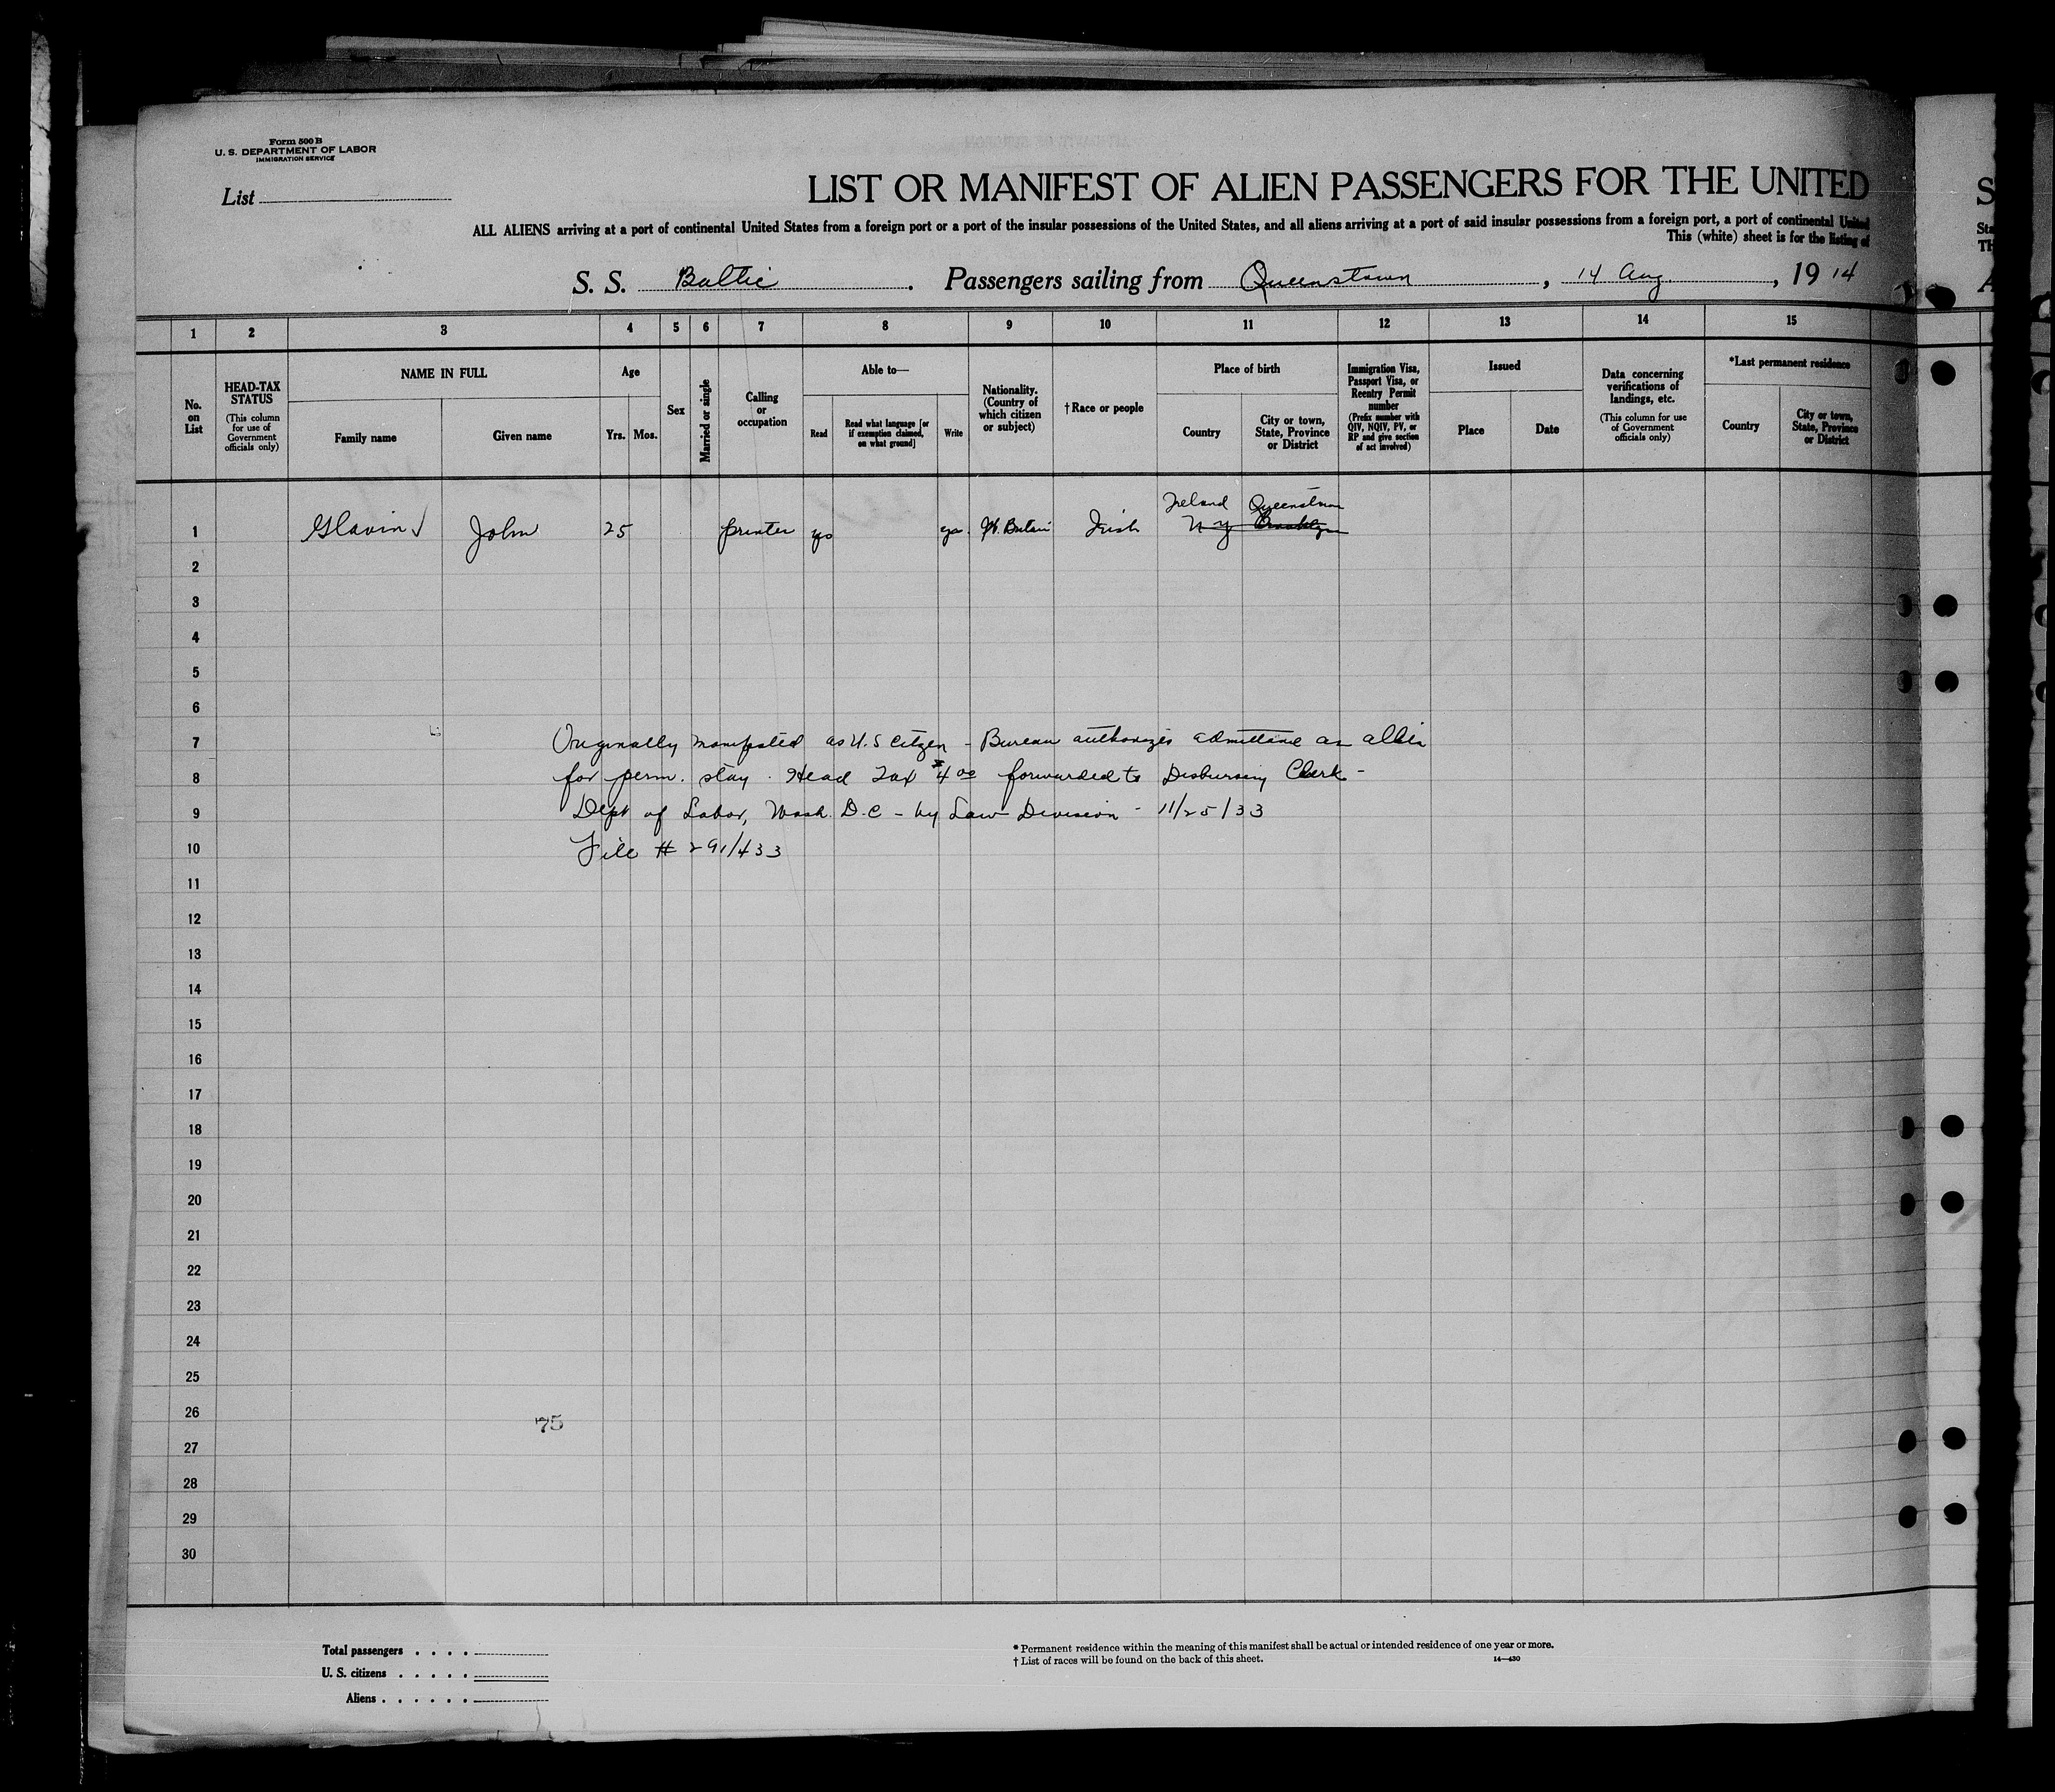 Form 500 B
U. S. DEPARTMENT OF LABOR
IMMIGRATION SERVICE
List
LIST OR MANIFEST OF ALIEN PASSENGERS FOR THE UNITED
ALL ALIENS arriving at a port of continental United States from a foreign port or a port of the insular possessions of the United States, and all aliens arriving at a port of said insular possessions from a foreign port, a port of continental United
This (white) sheet is for the listing of
S. S. Baltic . Passengers sailing from Queenstown , 14 Aug. , 19 14
1 2 3 4 5 6 7 8 9 10 11 12 13 14 15
No. on List
HEAD-TAX STATUS
(This column for use of Government officials only)
NAME IN FULL
Family name
Given name
Age
Yrs. Mos.
Sex
Married or single
Calling or occupation
Able to—
Read
Read what language [or if exemption claimed, on what ground]
Write
Nationality. (Country of which citizen or subject)
†Race or people
Place of birth
Country
City or town, State, Province or District
Immigration Visa, Passport Visa, or Reentry Permit number
(Prefix number with QIV, NQIV, PV, or RP and give section of act involved)
Issued
Place
Date
Data concerning verifications of landings, etc.
(This column for use of Government officials only)
*Last permanent residence
Country
City or town, State, Province or District
Ireland Queenstown
1 Glavin John 25 printer yes yes Gt. Britain Irish N Y Brooklyn
2
3
4
5
6
7 Originally manifested as U.S citizen - Bureau authorizes admittance as alien
8 for perm. stay. Head Tax $4.00 forwarded to Disbursing Clerk -
9 Dept of Labor, Wash. D.C - by Law Division - 11/25/33
10 File # 291/433
11
12
13
14
15
16
17
18
19
20
21
22
23
24
25
26
75
27
28
29
30
Total passengers . . . .
U. S. citizens . . . . .
Aliens . . . . . .
* Permanent residence within the meaning of this manifest shall be actual or intended residence of one year or more.
† List of races will be found on the back of this sheet.
14—430